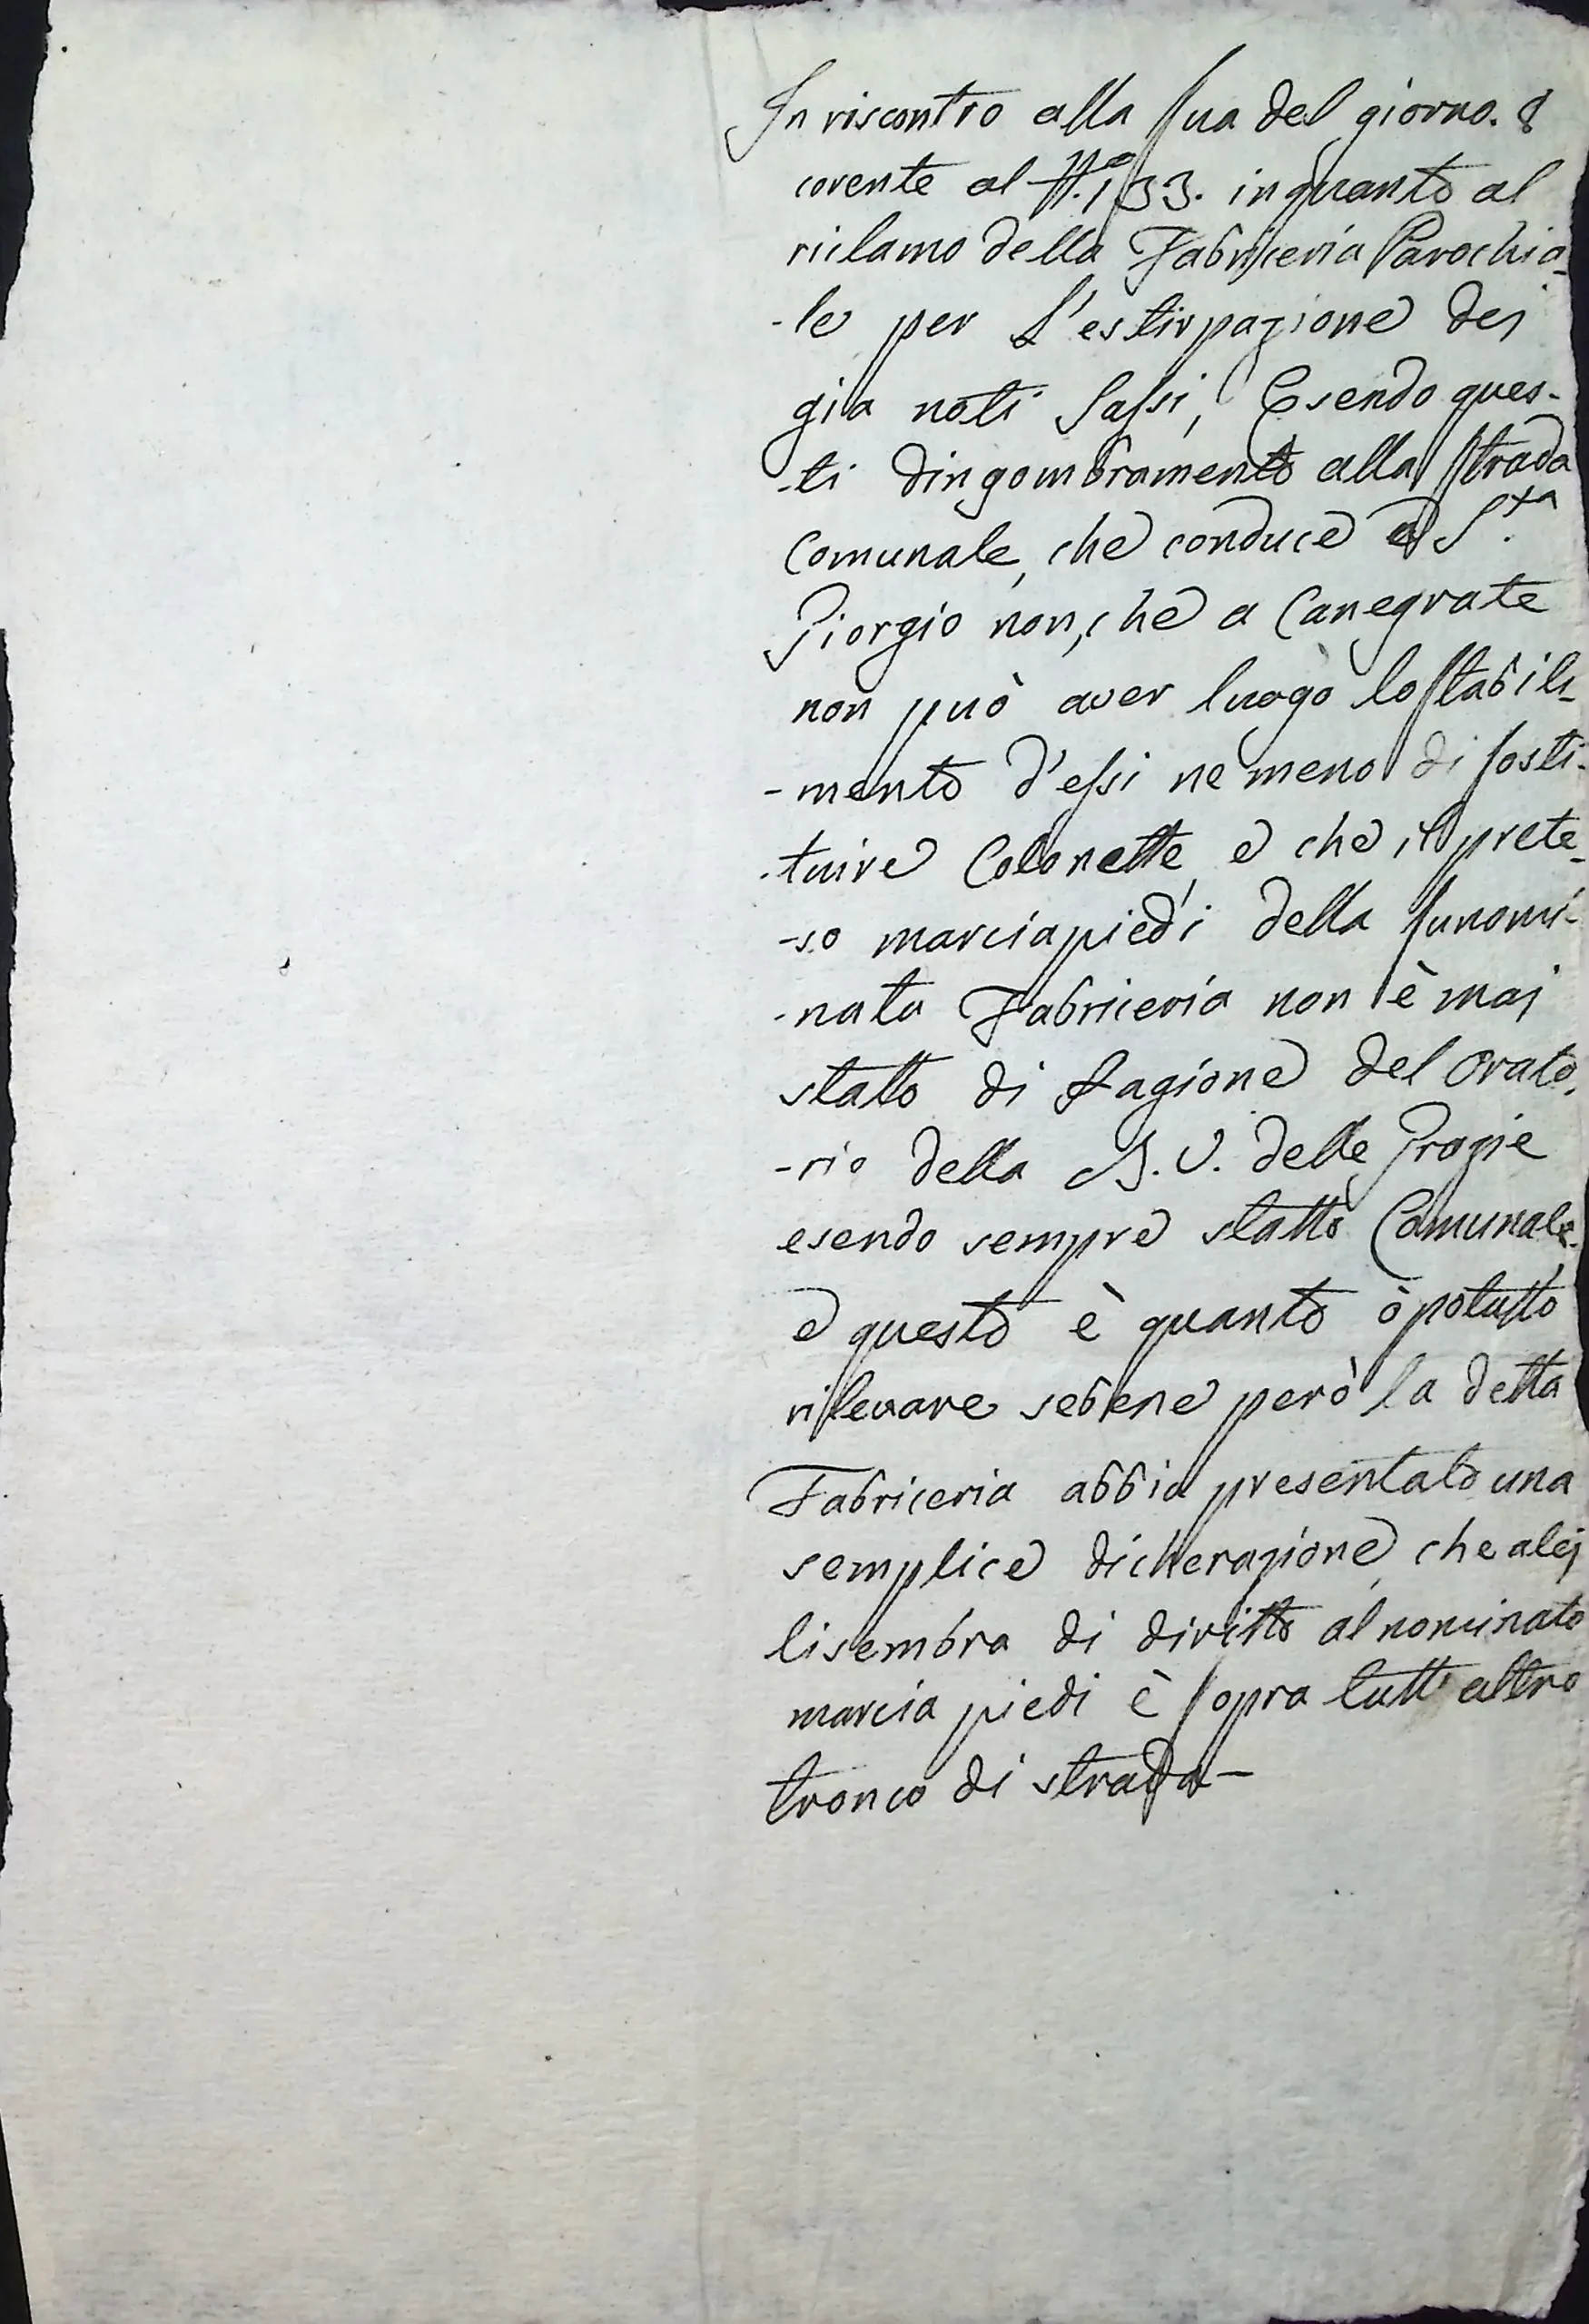 In riscontro alla sua del giorno. 8
corente al N.° 133. inquanto al
riclamo della Fabriceria Parochia-
-le per L'estirpazione dei
gia noti Sassi, Esendo ques-
-ti dingombramento alla strada
Comunale, che conduce a S.ta
Giorgio non, che a Canegrate
non può aver luogo lo stabili-
-mento d'essi ne meno di sosti-
-tuire Colonette, e che il prete-
-so marciapiedi della sunomi-
-nata Fabriceria non è mai
statto di Ragione del Orato-
-rio della B. V. delle Grazie
esendo sempre statto Comunale.
e questo è quanto ò potutto
rilevare sebene però la detta
Fabriceria abbia presentato una
semplice dicherazione, che alei
li sembra di diritto al nominato
marcia piedi è sopra tutt altro
tronco di strada-